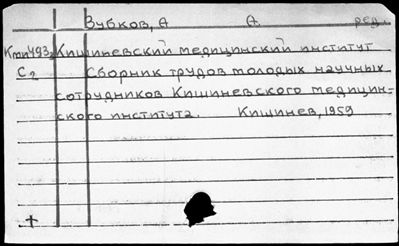 Зубков, А А ред.
Кмп493 Кишиневский медицинский институт
С2 Сборник трудов молодых научных
сотрудников Кишиневского медицин-
ского института. Кишинев, 1959